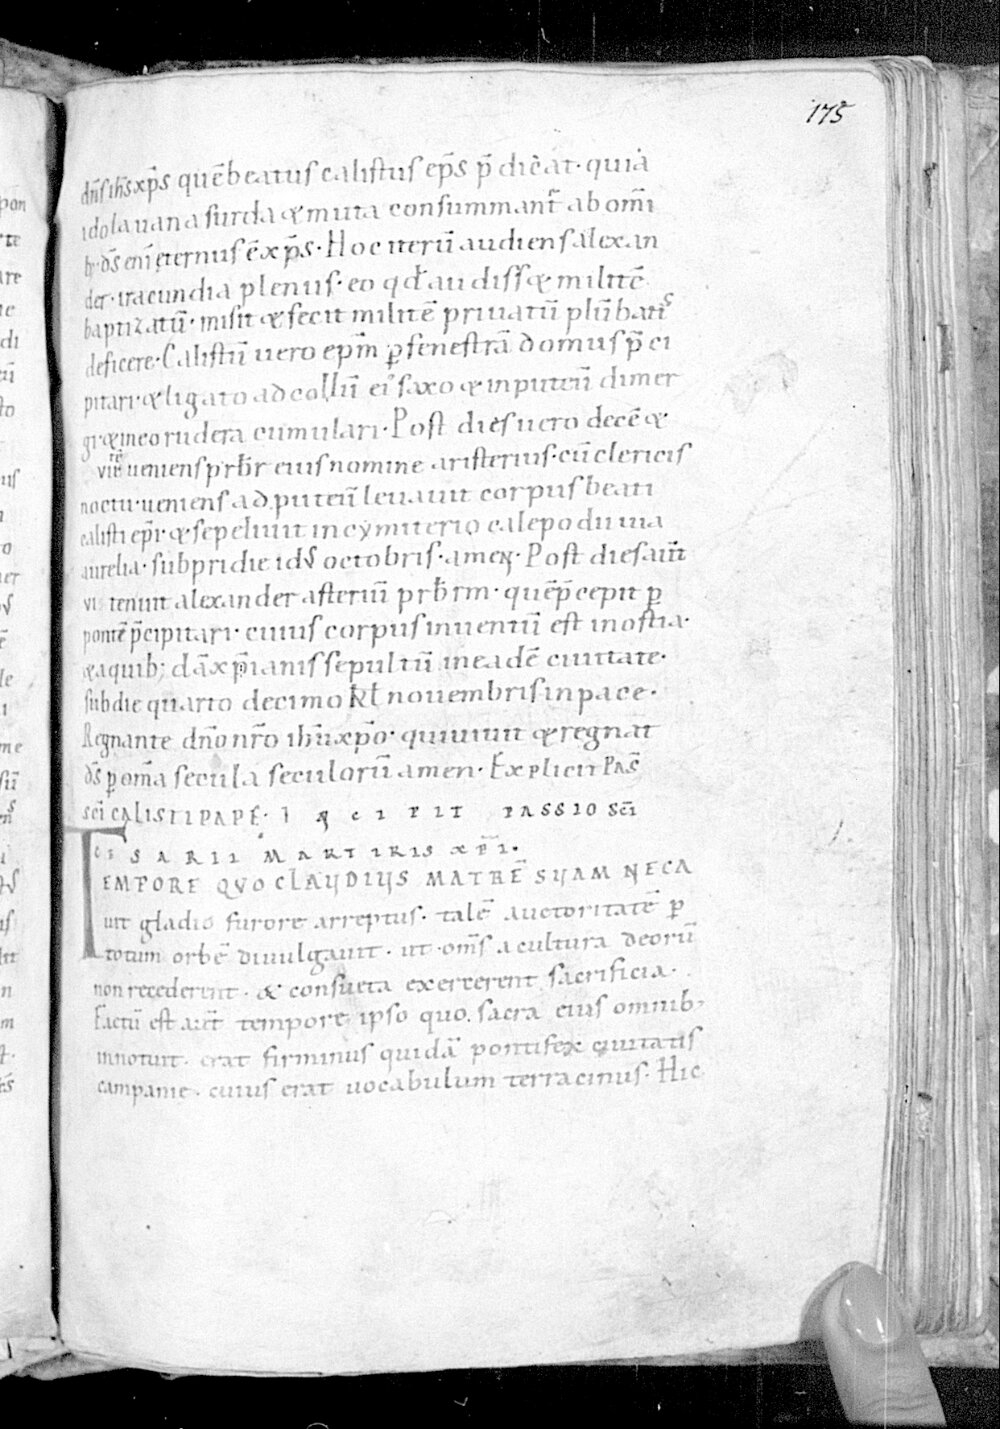 175
dn̄s ih̄s xp̄s quē beatus calistus ep̄s p̄dicat · quia
idola uana surda & muta consummant̄ ab om̄i
b; · ds̄ eni᷃ ęternus ē xp̄s · Hoc iterū audiens alexan
der · iracundia plenus · eo qđ audiss& militē
baptizatū · misit & fecit militē priuatū plūbatis
deficere · Calistū uero ep̄m ꝑ fenestrā domus p̄ci
pitari · & ligato ad collū ei᾽ saxo & in puteū dimer
gi · & in eo rudera cumulari · Post dies uero decē &
ueniens prb̄r eius nomine aristerius · cū clericis
noctu · ueniens ad puteū leuauit corpus beati
calisti ep̄i · & sepeliuit in cymiterio calepodii uia
aurelia · sub pridie idus octobris · amen · Post dies aut̄
vi tenuit alexander asteriū prb̄rm · quē p̄cepit ꝑ
pontē p̄cipitari · cuius corpus inuentū est in ostia ·
& a quib; dā xp̄ianis sepultū in eadē ciuitate ·
sub die quarto decimo kl̄ nouembris in pace ·
Regnante dn̄o nr̄o ih̄u xp̄o · qui uiuit & regnat
ds̄ ꝑ om̄a secula seculorū amen · Explicit Pas̄
sc̄i calisti pape · Incipit passio sc̄i
cesarii martiris xp̄i ·
Tempore quo claudius matrē suam neca
uit gladio furore arreptus · talē auctoritatē ꝑ
totum orbē diuulgauit · ut om̄s a cultura deorū
non recederent · & consueta exercerent sacrificia ·
Factū est aut̄ tempore ipso quo sacra eius omnib;
innotuit · erat firminus quidā pontifex ciuitatis
campanie · cuius erat uocabulum terracinus · Hic